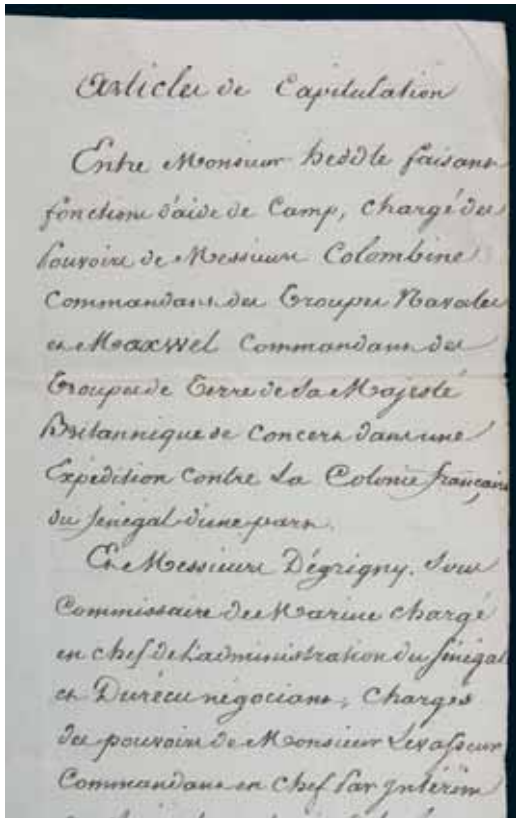 Articles de Capitulation
Entre Monsieur heddle faisant
fonctions d'aide de Camp, chargé des
Pouvoirs de Messieurs Colombine
Commandant des Troupes Navales
et Maxwel Commandant des
Troupes de Terre de Sa Majesté
Britannique de Concert dans une
Expédition Contre La Colonie française
du Sénégal d'une part.
Et Messieurs Dégrigny, Sous
Commissaire de Marine chargé
en chef de L'administration du Sénégal
et Durécu négociant, Chargés
des pouvoirs de Monsieur Levasseur
Commandant en Chef Par Intérim